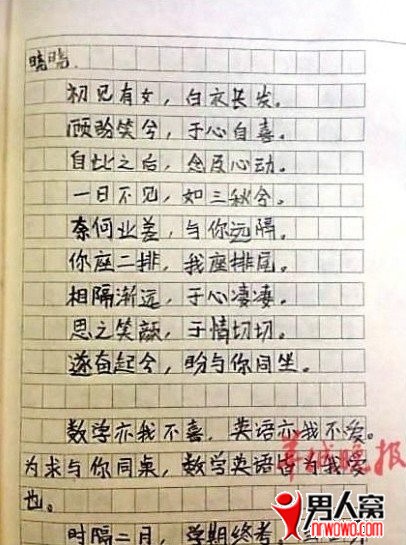 晓晓.
初见有女，白衣长发。
顾盼笑兮，于心自喜。
自此之后，念及心动。
一日不见，如三秋兮。
奈何业差，与你远隔。
你座二排，我座排尾。
相隔渐远，于心凄凄。
思之笑颜，于情切切。
遂奋起兮，盼与你同坐。
数学亦我不喜，英语亦我不爱。
为求与你同桌，数学英语皆为我爱
也。
羊城晚报
时隔二月，学期终考，
男人窝
nrwowo.com